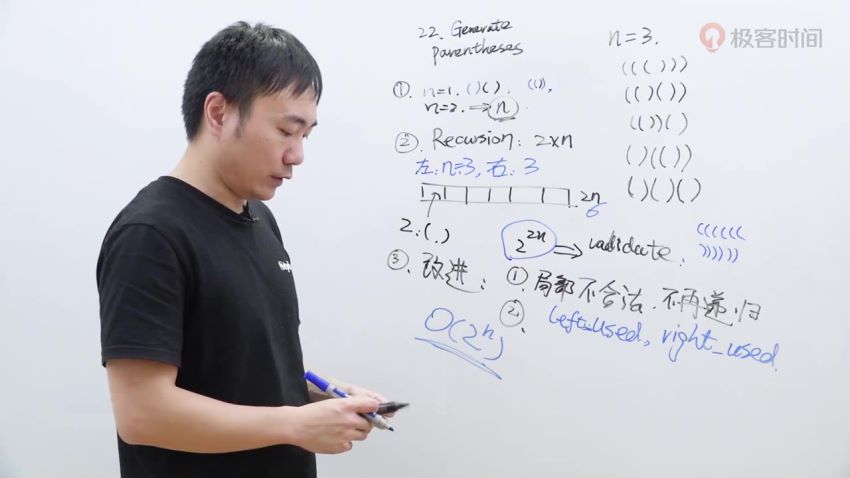 22. Generate
parentheses
①. n=1. ()(). (()),
n=2. ⇒ n.
②. Recursion: 2×n
左: n=3, 右: 3
2n
6
2: ( . )
2^{2n} ⇒ validate.
((((((
))))))
③. 改进: ①. 局部不合法, 不再递归
②. left_used, right_used.
O(2^n)
n=3.
((()))
(()())
(())()
()(())
()()()
极客时间